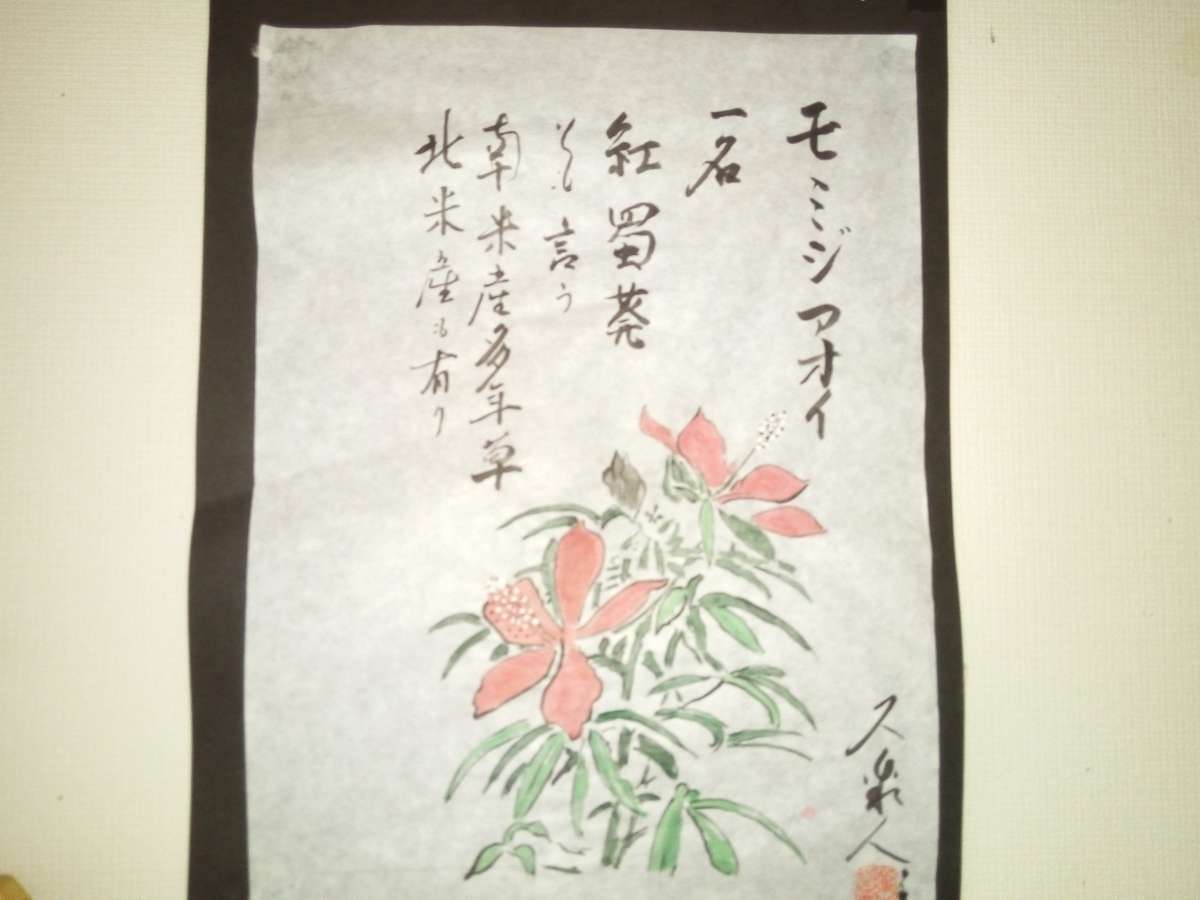 モミジアオイ
一名
紅蜀葵
とも言う
南米産多年草
北米産も有り